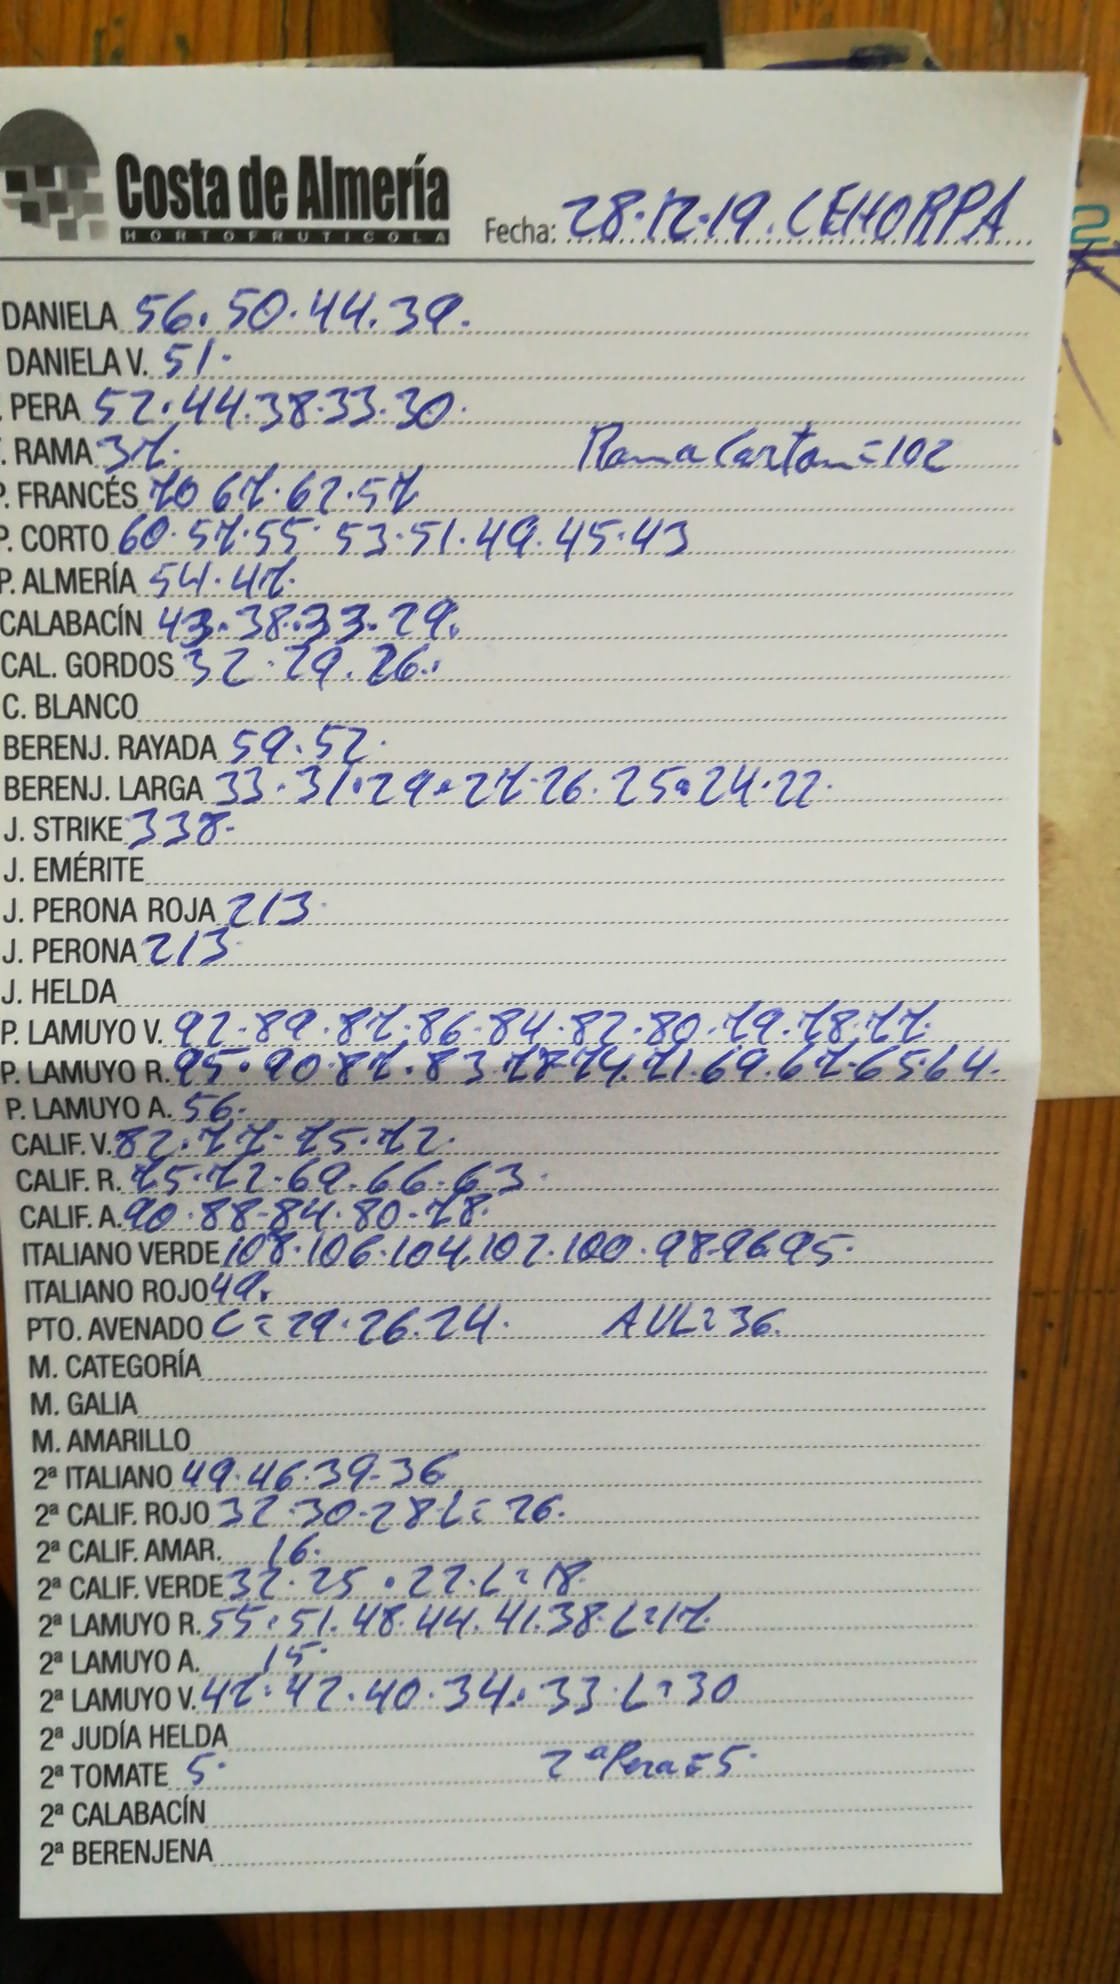 Costa de Almería
HORTOFRUTICOLA
Fecha: 28.12.19. CEHORPA
DANIELA 56. 50. 44. 39.
DANIELA V. 51.
. PERA 52. 44. 38. 33. 30.
. RAMA 37. Rama Carton = 102
P. FRANCÉS 70 67. 62. 57
P. CORTO 60. 57. 55. 53. 51. 49. 45. 43
P. ALMERÍA 54. 47.
CALABACÍN 43. 38. 33. 29.
CAL. GORDOS 32. 29. 26.
C. BLANCO
BERENJ. RAYADA 59. 52.
BERENJ. LARGA 33. 31. 29. 27. 26. 25. 24. 22.
J. STRIKE 338.
J. EMÉRITE
J. PERONA ROJA 213.
J. PERONA 213.
J. HELDA
P. LAMUYO V. 92. 89. 87. 86. 84. 82. 80. 79. 78. 77.
P. LAMUYO R. 95. 90. 87. 83. 78. 74. 71. 69. 67. 65. 64.
P. LAMUYO A. 56.
CALIF. V. 82. 77. 75. 72.
CALIF. R. 75. 72. 69. 66. 63.
CALIF. A. 90. 88. 84. 80. 78.
ITALIANO VERDE 108. 106. 104. 102. 100. 98. 96. 95.
ITALIANO ROJO 49.
PTO. AVENADO C = 29. 26. 24. AVL = 36.
M. CATEGORÍA
M. GALIA
M. AMARILLO
2ª ITALIANO 49. 46. 39. 36.
2ª CALIF. ROJO 32. 30. 28 L = 26.
2ª CALIF. AMAR. 16.
2ª CALIF. VERDE 32. 25. 22. L = 18.
2ª LAMUYO R. 55. 51. 48. 44. 41. 38. L = 17.
2ª LAMUYO A. 15.
2ª LAMUYO V. 47. 42. 40. 34. 33. L = 30
2ª JUDÍA HELDA
2ª TOMATE 5. 2ª Pera = 5.
2ª CALABACÍN
2ª BERENJENA